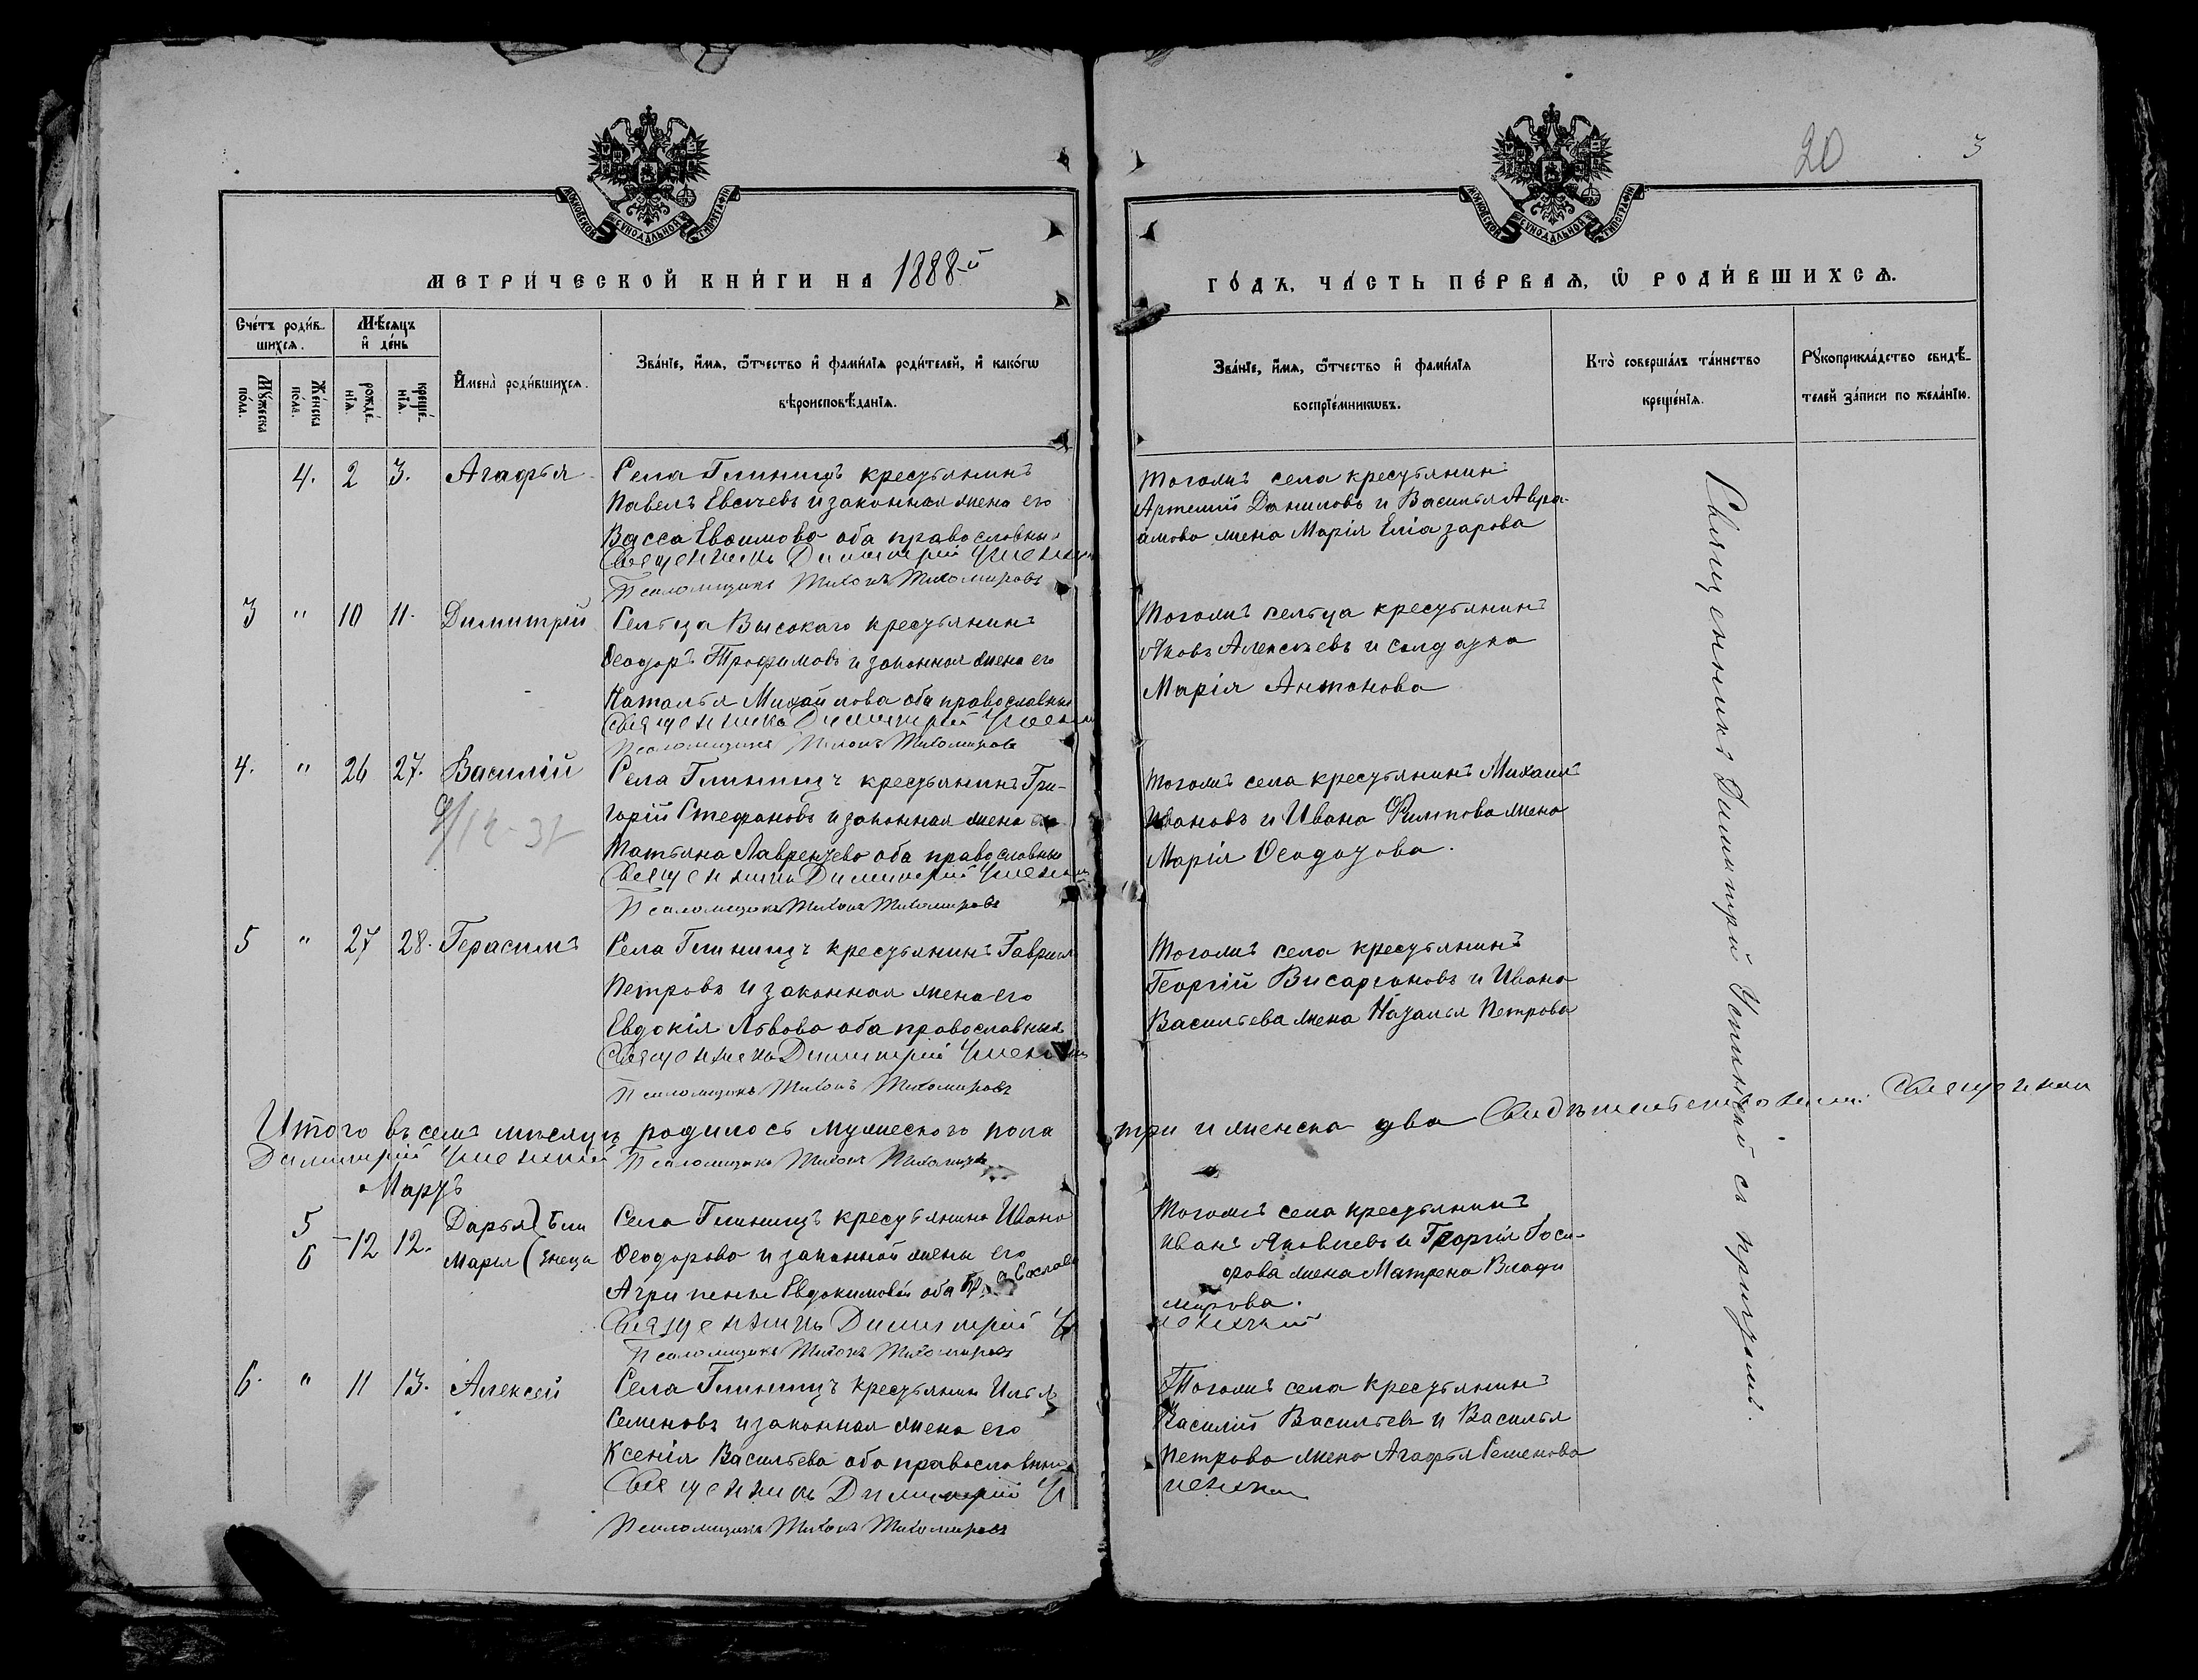 20
3
МОСКОВСКОЙ СѴНОДАЛЬНОЙ ТИПОГРАФІИ
МОСКОВСКОЙ СѴНОДАЛЬНОЙ ТИПОГРАФІИ
МЕТРИ́ЧЕСКОЙ КНИ́ГИ НА 1888-й
ГО́ДЪ, ЧА́СТЬ ПЕ́РВАѦ, Ѽ РОДИ́ВШИХСѦ.
Сче́тъ роди́в-
шихсѧ.
Мѣ́сяцъ
и҆ де́нь
Му́жеска
по́ла.
Же́нска
по́ла.
рожде́-
нїѧ.
креще́-
нїѧ.
И҆мена̀ роди́вшихсѧ.
Зва́нїе, и҆́мѧ, ѻ҆́тчество и҆ фами́лїѧ роди́телей, и҆ како́гѡ
вѣроисповѣ́данїѧ.
Зва́нїе, и҆́мѧ, ѻ҆́тчество и҆ фами́лїѧ
воспрїе́мникѡвъ.
Кто̀ соверша́лъ та́инство
креще́нїѧ.
Рꙋкоприкла́дство свидѣ́-
телей за́писи по жела́нїю.
4. 2 3. Агафья Села Глиницъ крестьянинъ
Павелъ Евсѣевъ и законная жена его
Васса Евфимова оба православны
Священникъ Димитрій Успенскій
Псаломщикъ Тихонъ Тихомировъ
Тогожъ села крестьянинъ
Артемій Даниловъ и Василья Авра-
амова жена Марія Еліазарова
3 " 10 11. Димитрій Сельца Высокаго крестьянинъ
Ѳеодоръ Трофимовъ и законная жена его
Наталья Михайлова оба православны
Священникъ Димитрій Успенскій
Псаломщикъ Тихонъ Тихомировъ
Тогожъ сельца крестьянинъ
Яковъ Алексѣевъ и солдатка
Марія Антонова
4. " 26 27. Василій Села Глиницъ крестьянинъ Гри-
горій Стефановъ и законная жена его
Татьяна Лаврентьева оба православны
Священникъ Димитрій Успенскій
Псаломщикъ Тихонъ Тихомировъ
Тогожъ села крестьянинъ Михаилъ
Ивановъ и Ивана Филипова жена
Марія Ѳеодотова.
5 " 27 28. Герасимъ Села Глиницъ крестьянинъ Гавриилъ
Петровъ и законная жена его
Евдокія Львова оба православны
Священникъ Димитрій Успенскій
Псаломщикъ Тихонъ Тихомировъ
Тогожъ села крестьянинъ
Георгій Висаріоновъ и Ивана
Васильева жена Наталья Петрова
Итого въ семъ мѣсяцѣ родилось мужескаго пола три и женска два Свидѣтельствовали: Священникъ
Димитрій Успенскій Псаломщикъ Тихонъ Тихомировъ
Мартъ
5 6 12 12. Дарья Марія близнеца Села Глиницъ крестьянина Ивана
Ѳеодорова и законной жены его
Агрипены Евдокимовой оба православны
Священникъ Димитрій Успенскій
Псаломщикъ Тихонъ Тихомировъ
Тогожъ села крестьянинъ
Иванъ Яковлевъ и Георгія
жена Матрена Влади
мирова.
6. " 11 13. Алексей Села Глиницъ крестьянин Илья
Семеновъ и законная жена его
Ксенія Васильева оба православны
Священникъ Димитрій Успенскій
Псаломщикъ Тихонъ Тихомировъ
Тогожъ села крестьянинъ
Василій Васильевъ и Василья
Петрова жена Агафья Семенова
Священникъ Димитрій Успенскій съ причтомъ.